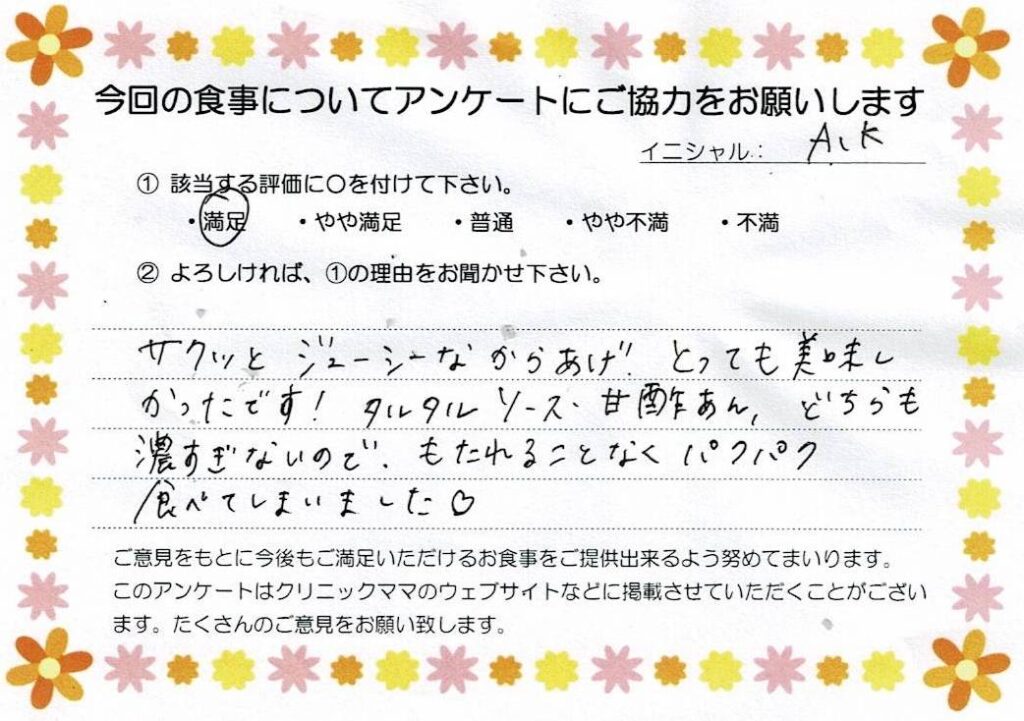 今回の食事についてアンケートにご協力をお願いします
イニシャル: A、K
① 該当する評価に〇を付けて下さい。
・満足 ・やや満足 ・普通 ・やや不満 ・不満
② よろしければ、①の理由をお聞かせ下さい。
サクッと ジューシーな からあげ! とっても美味し
かったです! タルタルソース、甘酢あん、どちらも
濃すぎないので、もたれることなく パクパク
食べてしまいました♡
ご意見をもとに今後もご満足いただけるお食事をご提供出来るよう努めてまいります。
このアンケートはクリニックママのウェブサイトなどに掲載させていただくことがござい
ます。たくさんのご意見をお願い致します。